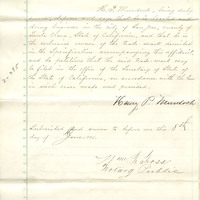 H. P. Murdock, being duly
sworn, deposes and says that he is located and
doing business in the city of San Jose, county of
Santa Clara, State of California, and that he is
the exclusive owner of the Trade mark described
in the Specification accompanying this affidavit,
and he petitions that the said Trade mark may
be filed in the office of the Secretary of State of
the State of California, in accordance with the law
in such case made and provided.
Henry P. Murdock
Subscribed and sworn to before me this 8th
day of
Notary Public